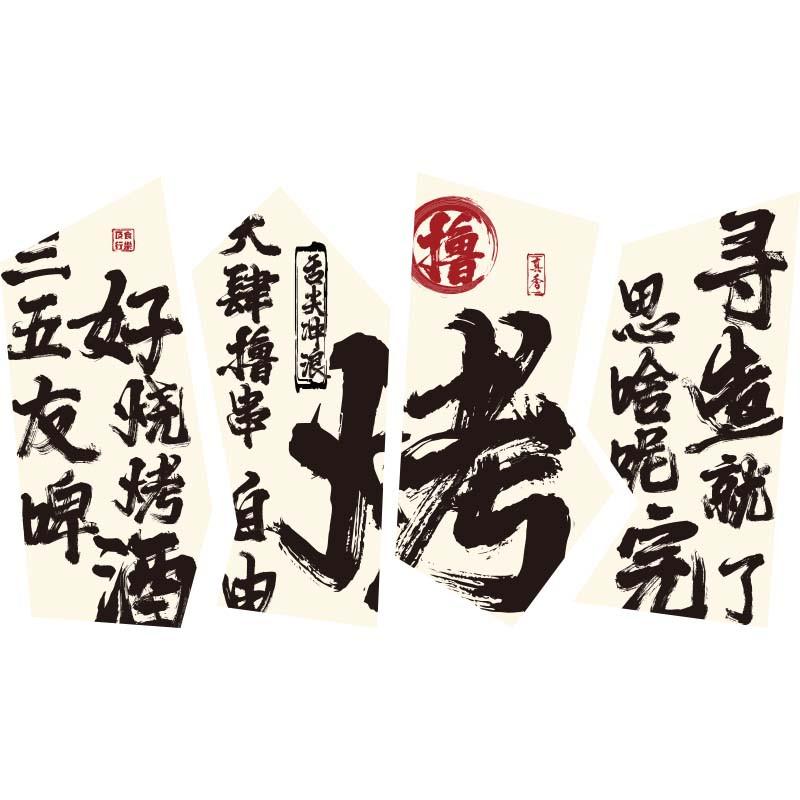 三五友啤
好烧烤酒
及食
行乐
大肆撸串 自由
舌尖冲浪
烤
撸
真香
思啥呢完
寻造就了